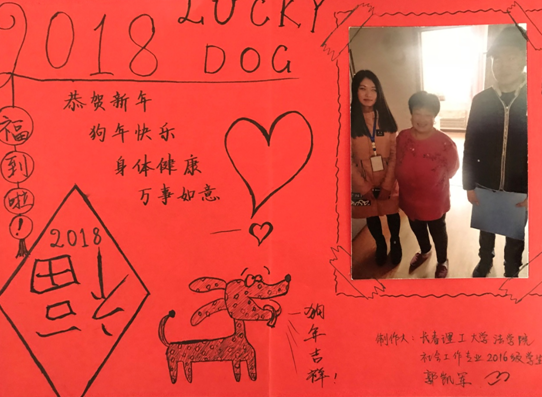 2018
LUCKY
DOG
恭贺新年
狗年快乐
身体健康
万事如意
福到啦!
2018
福
狗年吉祥!
制作人:长春理工大学法学院
社会工作专业2016级学生